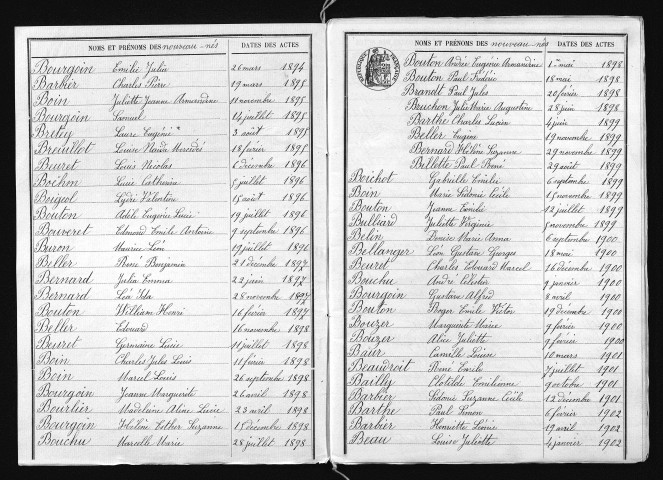 NOMS ET PRÉNOMS DES nouveau-nés DATES DES ACTES
Bourgoin Emilie Julia 26 mars 1894
Barbier Charles Pierre 19 mars 1895
Boin Juliette Jeanne Armandine 11 novembre 1895
Bourgoin Samuel 14 juillet 1895
Bretiy Laure Eugénie 3 août 1895
Breuillot Louise Naide Mercédès 18 février 1895
Beuret Louis Nicolas 1 décembre 1896
Bochon Lucie Catherine 5 juillet 1896
Boigeol Lydie Valentine 15 août 1896
Bouton Adèle Eugenie Lucie 19 juillet 1896
Bouveret Edmond Emile Antoine 9 septembre 1896
Buron Maurice Léon 19 juillet 1896
Beller René Benjamin 21 décembre 1897
Bernard Julia Emma 22 juin 1897
Bernard Léa Ida 28 novembre 1897
Bouton William Henri 16 février 1897
Beller Edouard 16 novembre 1898
Beuret Germaine Lucie 11 juillet 1898
Boin Charles Jules Louis 11 février 1898
Boin Marcel Louis 26 septembre 1898
Bourgoin Jeanne Marguerite 26 avril 1898
Bourtier Madeleine Aline Lucie 23 avril 1898
Bourgoin Hélène Esther Suzanne 15 décembre 1898
Bouchu Marcelle Marie 28 juillet 1898
NOMS ET PRÉNOMS DES nouveau-nés DATES DES ACTES
Bouton André Eugénie Armandine 1er mai 1898
Bouton Paul Frédéric 18 mai 1898
Brandt Paul Jules 20 février 1898
Bouchon Julie Marie Augustine 28 juin 1898
Barthe Charles Lucien 4 juin 1899
Beller Eugène 19 novembre 1899
Bernard Hélène Suzanne 29 novembre 1899
Bellette Paul René 29 août 1899
Boichot Gabrielle Emilie 6 septembre 1899
Boin Marie Sidonie Cécile 15 novembre 1899
Bouton Jeanne Emilie 12 juillet 1899
Bulliard Juliette Virginie 5 novembre 1899
Belin Denise Marie Anna 6 septembre 1900
Bellanger Léon Gustave Georges 18 mai 1900
Beuret Charles Edouard Marcel 16 décembre 1900
Bouchu André Célestin 9 janvier 1900
Bourgoin Gustave Alfred 8 avril 1900
Bouton Roger Emile Victor 19 décembre 1900
Bouzer Marguerite Marie 9 février 1900
Bouzer Alice Juliette 9 février 1900
Baur Camille Louise 10 mars 1901
Beaudroit René Emile 7 juillet 1901
Bailly Clotilde Emilienne 9 octobre 1901
Barbier Sidonie Suzanne Cécile 12 décembre 1901
Barthe Paul Simon 6 février 1902
Barbier Henriette Léonie 19 avril 1902
Beau Louise Juliette 4 janvier 1902